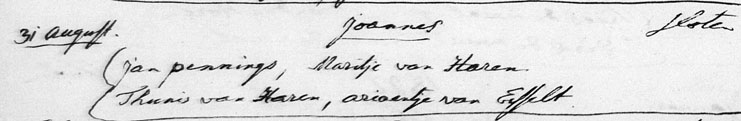 31 august. joannes Sloten
jan pennings, Maritje van Haren
Thunis van Haren, ariaentje van Effelt